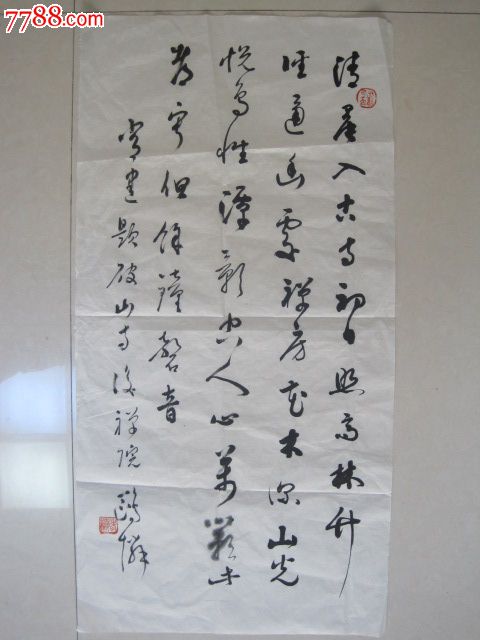 7788.com
清晨入古寺初日照高林竹
徑通幽處禪房花木深山光
悦鳥性潭影空人心萬籟此
都寂但餘鐘磬音
常建題破山寺後禪院